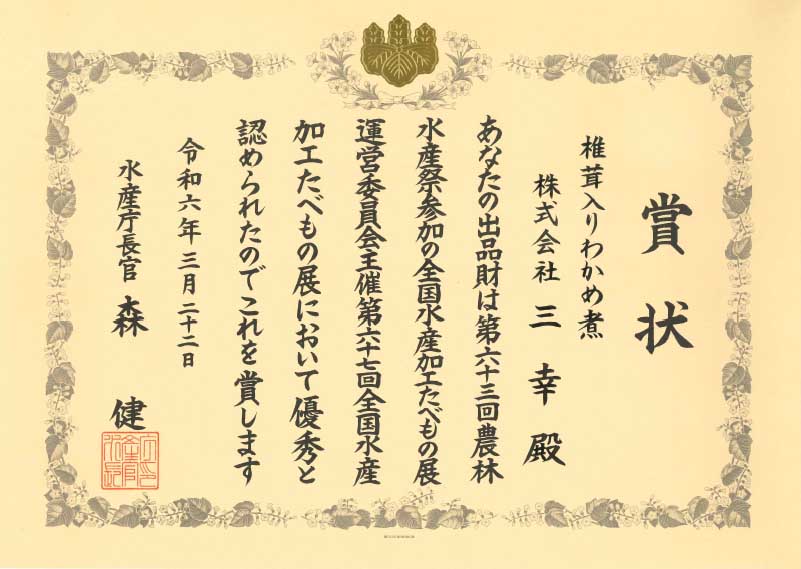 賞状
椎茸入りわかめ煮
株式会社 三幸 殿
あなたの出品財は第六十三回農林
水産祭参加の全国水産加工たべもの展
運営委員会主催第六十七回全国水産
加工たべもの展において優秀と
認められたのでこれを賞します
令和六年三月二十二日
水産庁長官 森 健